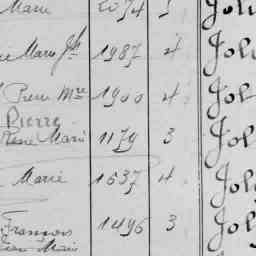 Marie 2074 3 Joli
Marie Jh 1987 4 Jol
Pierre Mre 1900 4 Jol
Pierre
René Marie 1179 3 Jol
Marie 1637 4 Jol
François 1496 3 Jol
Jean Marie